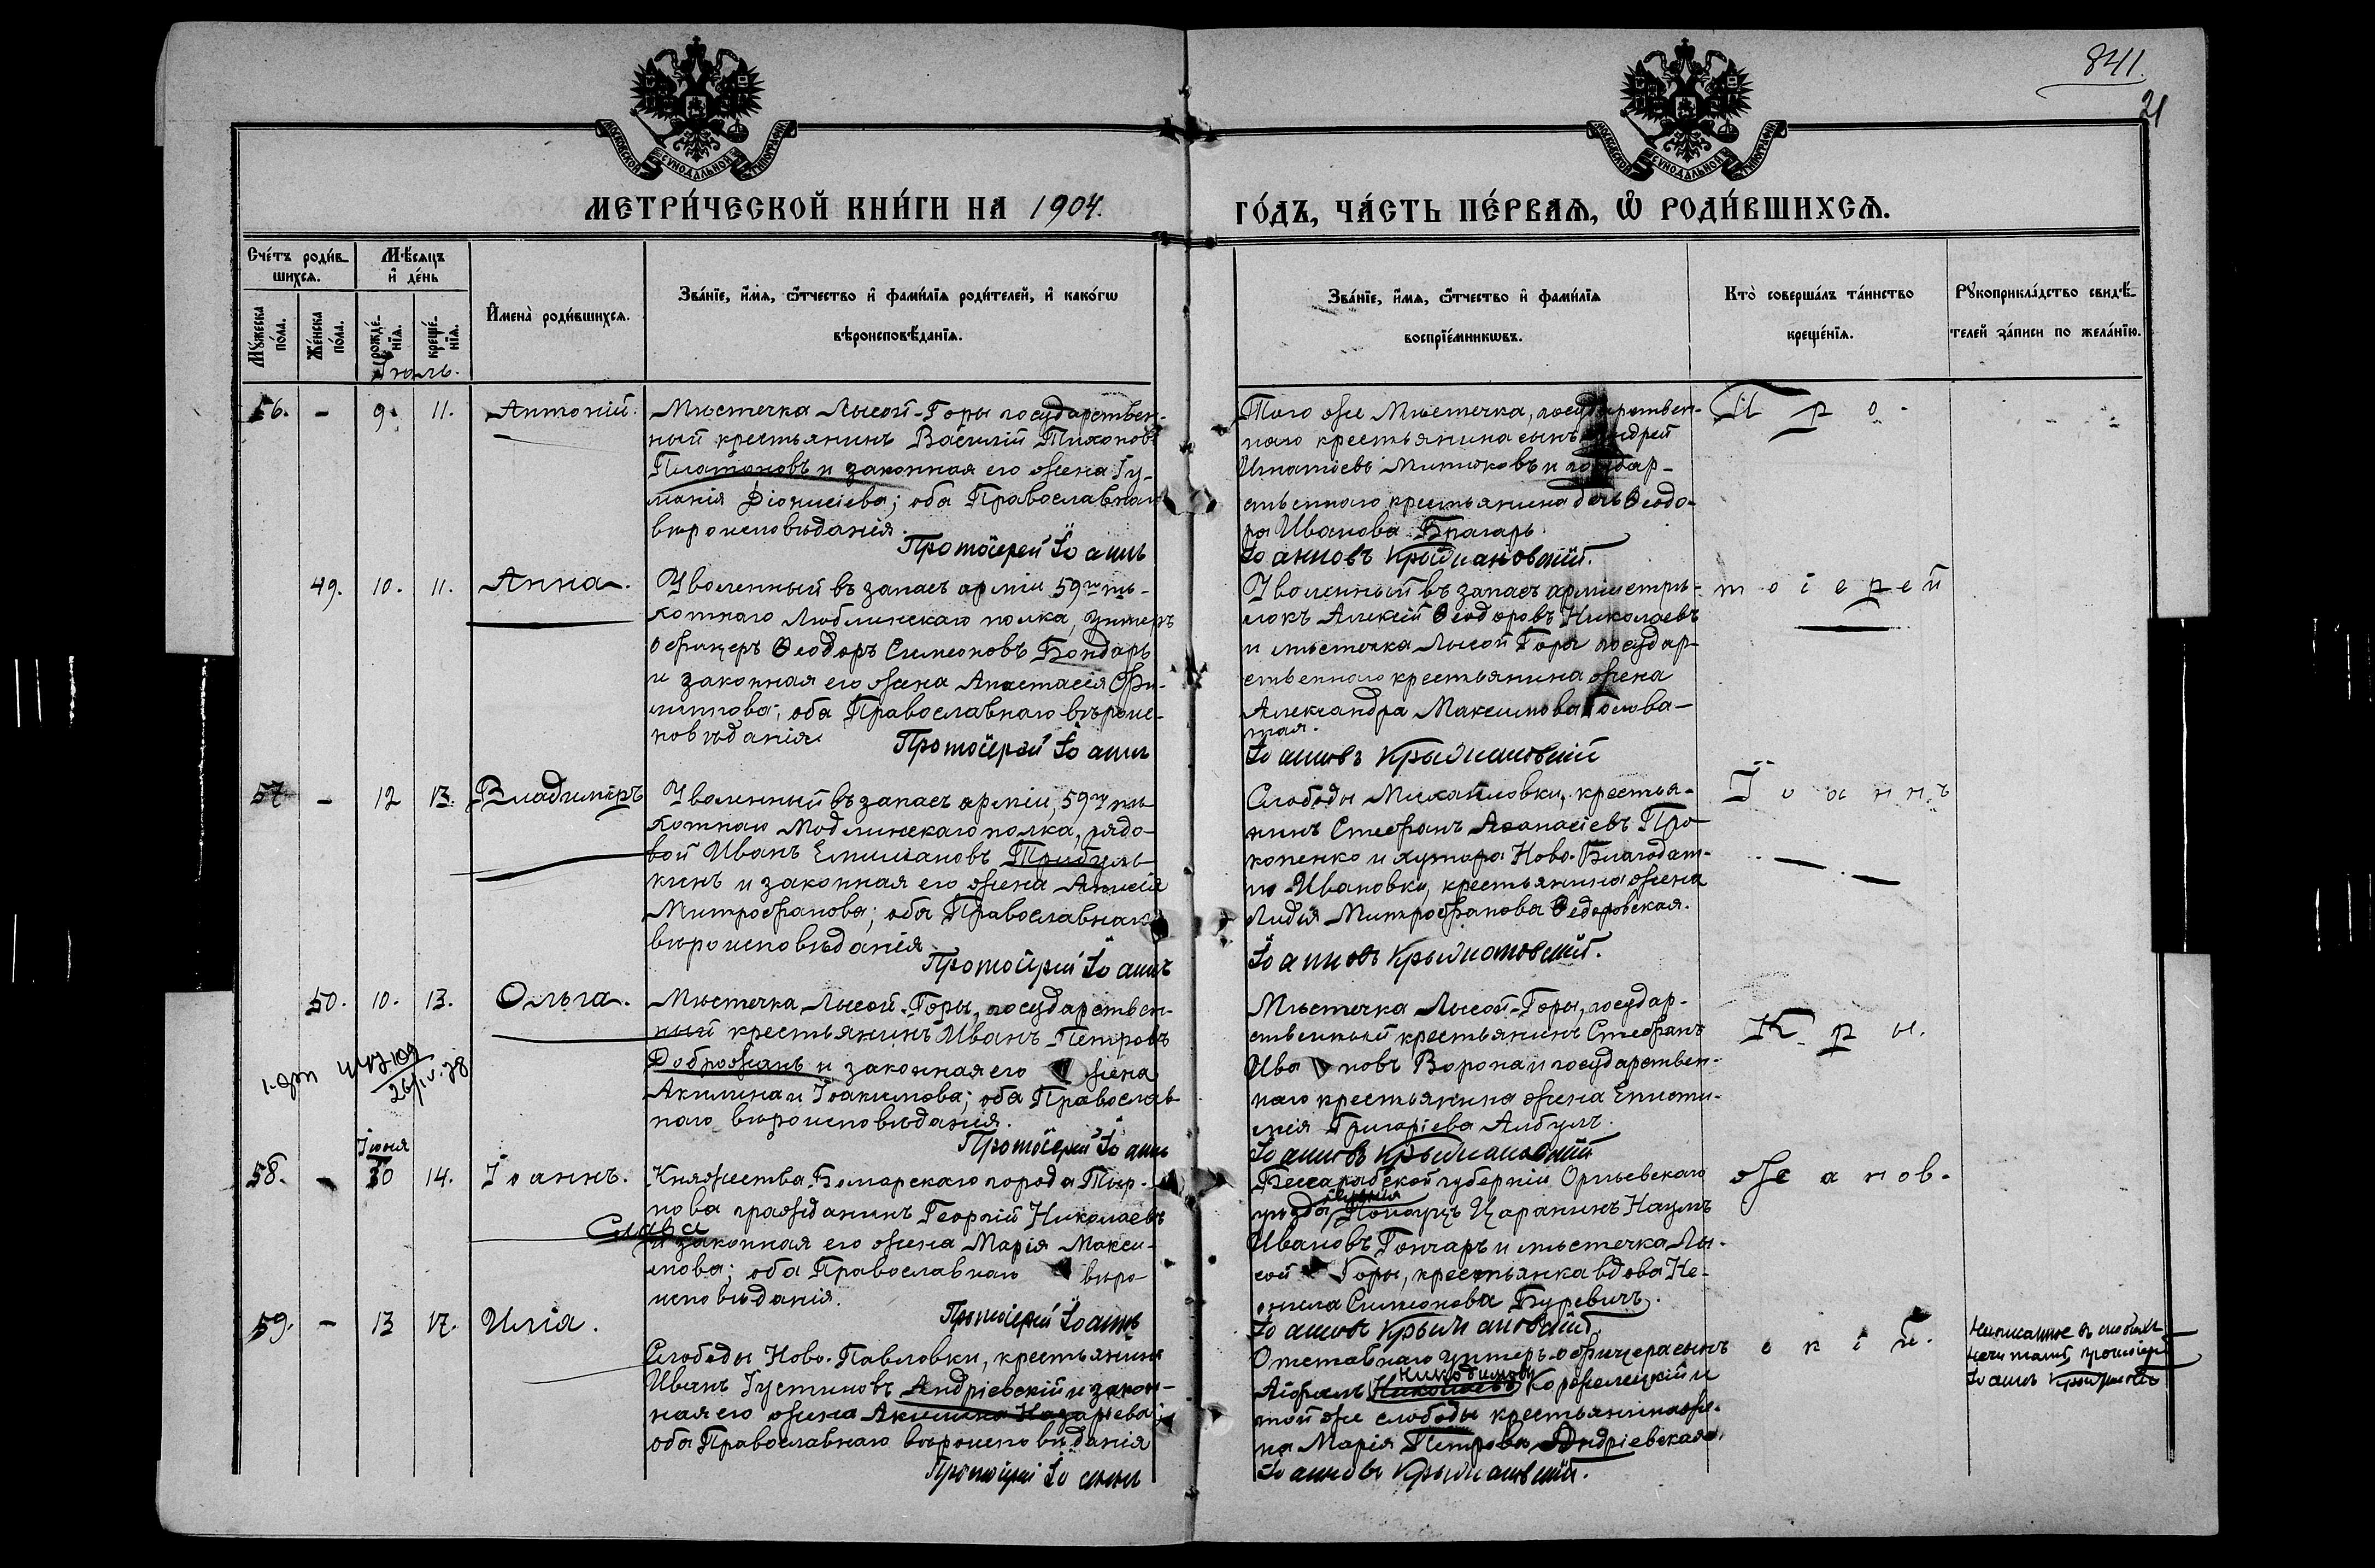 841.
21
МОСКОВСКОЙ СѴНОДАЛЬНОЙ ТИПОГРАФІИ
МОСКОВСКОЙ СѴНОДАЛЬНОЙ ТИПОГРАФІИ
МЕТРИ́ЧЕСКОЙ КНИ́ГИ НА 1904.
ГО́ДЪ, ЧА́СТЬ ПЕ́РВАѦ, Ѡ҆ РОДИ́ВШИХСѦ.
Сче́тъ роди́в-
шихсѧ.
Мꙋ́жеска по́ла.
Же́нска по́ла.
Мѣ́сяцъ
и҆ де́нь
рожде́-
нїѧ.
креще́-
нїѧ.
Іюль.
И҆мена̀ роди́вшихсѧ.
Зва́нїе, и҆́мѧ, ѻ҆́тчество и҆ фами́лїѧ роди́телей, и҆ како́гѡ
вѣроисповѣ́данїѧ.
Зва́нїе, и҆́мѧ, ѻ҆́тчество и҆ фами́лїѧ
воспрїе́мникѡвъ.
Кто̀ соверша́лъ та́инство
креще́нїѧ.
Рꙋкоприкла́дство свидѣ́-
телей за́писи по жела́нїю.
56. - 9. 11. Антоній.
Мѣстечка Лысой-Горы государствен-
ный крестьянинъ Василій Тихоновъ
Платоновъ и законная его жена Гу-
манія Діонисіева; оба Православнаго
вѣроисповѣданія.
Протоіерей Іоаннъ
Того же Мѣстечка, государствен-
наго крестьянина сынъ Андрей
Игнатіевъ и государ-
ственнаго крестьянина дочь Ѳеодо-
ра Иванова Брагарь.
Іоанновъ Крыжановскій.
П р о-
49. 10. 11. Анна.
Уволенный въ запасъ арміи 59го пѣ-
хотнаго Люблинскаго полка, унтеръ
офицеръ Ѳеодоръ Симеоновъ Бондарь
и законная его жена Анастасія Фи-
липпова; оба Православнаго вѣроис-
повѣданія.
Протоіерей Іоаннъ
Уволенный въ запасъ арміи стрѣ-
локъ Алексій Ѳеодоровъ Николаевъ
и мѣстечка Лысой Горы государ-
ственнаго крестьянина жена
Александра Максимова Голова-
тая.
Іоанновъ Крыжановскій
т о і е р е й
57. - 12 13. Владиміръ
Уволенный въ запасъ арміи, 59го пѣ-
хотнаго Модлинскаго полка, рядо-
вой Иванъ Емиліановъ Трибуль-
кинъ и законная его жена Анисія
Митрофанова; оба Православнаго
вѣроисповѣданія
Протоіерей Іоаннъ
Слободы Михайловки, крестья-
нинъ Стефанъ Аѳанасіевъ Про-
копенко и хутора Ново-Благодат-
но Ивановки, крестьянина жена
Лидія Митрофанова Ѳедоровская.
Іоанновъ Крыжановскій.
І о а н н ъ
50. 10. 13. Ольга.
26/IV.78
Мѣстечка Лысой-Горы, государствен-
ный крестьянинъ Иванъ Петровъ
Доброжанъ и законная его жена
Акилина Іоакимова; оба Православ-
наго вѣроисповѣданія.
Протоіерей Іоаннъ
Мѣстечка Лысой-Горы, государ-
ственный крестьянинъ Стефанъ
Ивановъ Ворона и государствен-
наго крестьянина жена Еписти-
мія Григоріева Албулъ.
Іоанновъ Крыжановскій
К р ы.
Іюня
58. - 30 14. Іоаннъ.
Княжества Болгарскаго города Тыр-
нова гражданинъ Георгій Николаевъ
Слава
и законная его жена Марія Макси-
мова; оба Православнаго вѣро-
исповѣданія.
Протоіерей Іоаннъ
Бессарабской губерніи Оргѣевскаго
уѣзда селенія Царанинъ Наумъ
Ивановъ Гончаръ и мѣстечка Лы-
сой Горы, крестьянка вдова Не-
онила Симеонова Буревичъ.
Іоанновъ Крыжановскій.
ж а н о в-
59. - 13 17. Илія.
Слободы Ново-Павловки, крестьянинъ
Иванъ Іустиновъ Андріевскій и закон-
ная его жена Акилина Назарьева;
оба Православнаго вѣроисповѣданія
Протоіерей Іоаннъ
Отставнаго унтеръ-офицера сынъ
Никодимовъ
Николаевъ и
той же слободы крестьянина же-
на Марія Петрова Андріевская.
Іоанновъ Крыжановскій.
с к і й.
протоіерей
Іоаннъ Крыжановскій